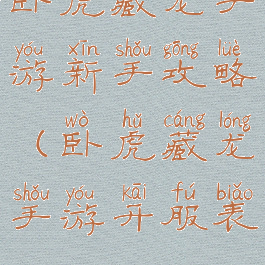 卧虎藏龙手
yóu xīn shǒu gōng lüè
游新手攻略
wò hǔ cáng lóng
(卧虎藏龙
shǒu yóu kāi fú biǎo
手游开服表